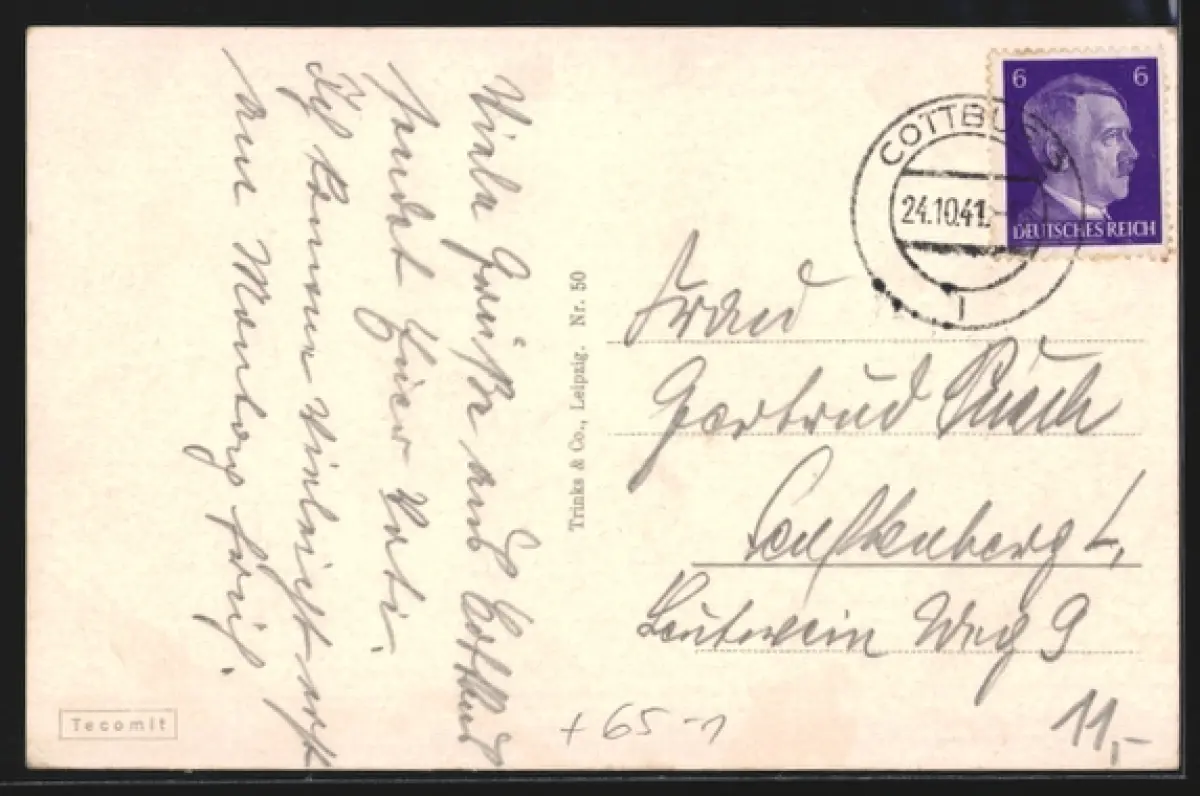 Viele Grüße aus Cottbus
sendet hier Vati.
Ich komme vielleicht erst
am Montag früh.
Trinks & Co., Leipzig. Nr. 50
Tecomit
6 6
DEUTSCHES REICH
COTTBUS
24.10.41.
1
Frau
Gertrud
Senftenberg L.
Weg 9
+ 65-1
11,-